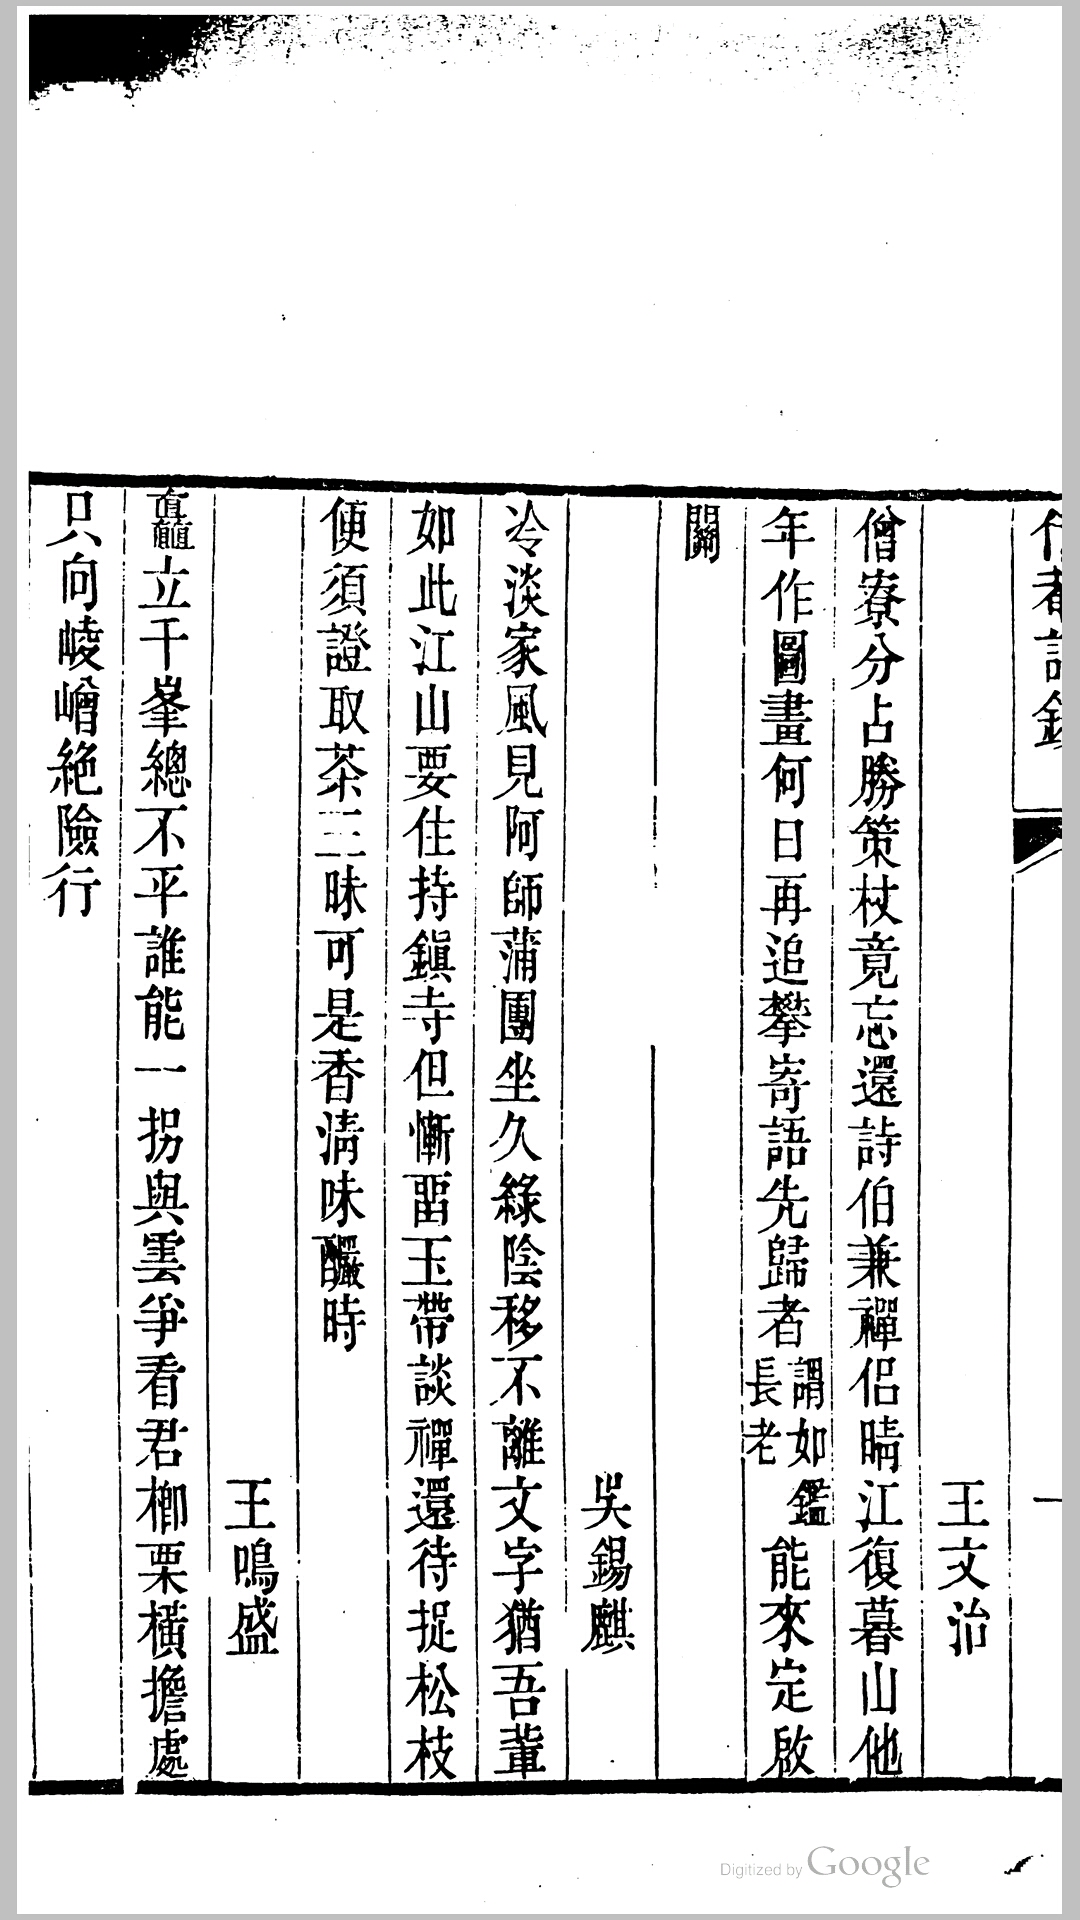 王文治
僧寮分占勝策杖竟忘還詩伯兼禪侶晴江復暮山他
年作圖畫何日再追攀寄語先歸者謂如鑑長老能來定啟
關
吳錫麒
冷淡家風見阿師蒲團坐久綠陰移不離文字猶吾輩
如此江山要住持鎭寺但慚畱玉帶談禪還待捉松枝
便須證取茶三昧可是香淸味釅時
王鳴盛
矗立千峯總不平誰能一拐與雲爭看君榔栗橫擔處
只向崚嶒絶險行
Digitized by Google